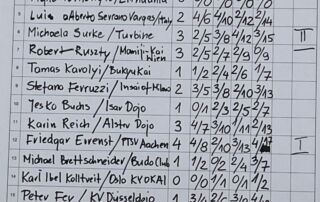 5 Luis Alberto Serrano Vargas/Italy 2 4/6 4/10 2/12 2/14
6 Michaela Surke/Turbine 3 2/5 3/8 4/12 3/15 II
7 Robert Ruszty/Mamiji-Kai Wien 3 2/5 2/7 2/9 0/9
8 Tomas Karolyi/Bukyukai 1 1/2 2/4 2/6 1/7
9 Stefano Ferruzzi/Insai of Milano 2 3/5 3/8 2/10 3/13
10 Jesko Buchs/Isar Dojo 1 0/1 2/3 2/5 2/7
11 Karin Reich/Alster Dojo 3 4/7 3/10 1/11 2/13
12 Friedgar Evenst/MTSV Aachen 4 4/8 2/10 3/13 I
13 Michael Brettschneider/Budo Club 1 1/2 0/2 2/4 3/7
14 Kari Ibel Kolltveit/Oslo KYOKAI 0 0/0 1/1 0/1 1/2
15 Peter Fey/KV Düsseldorf